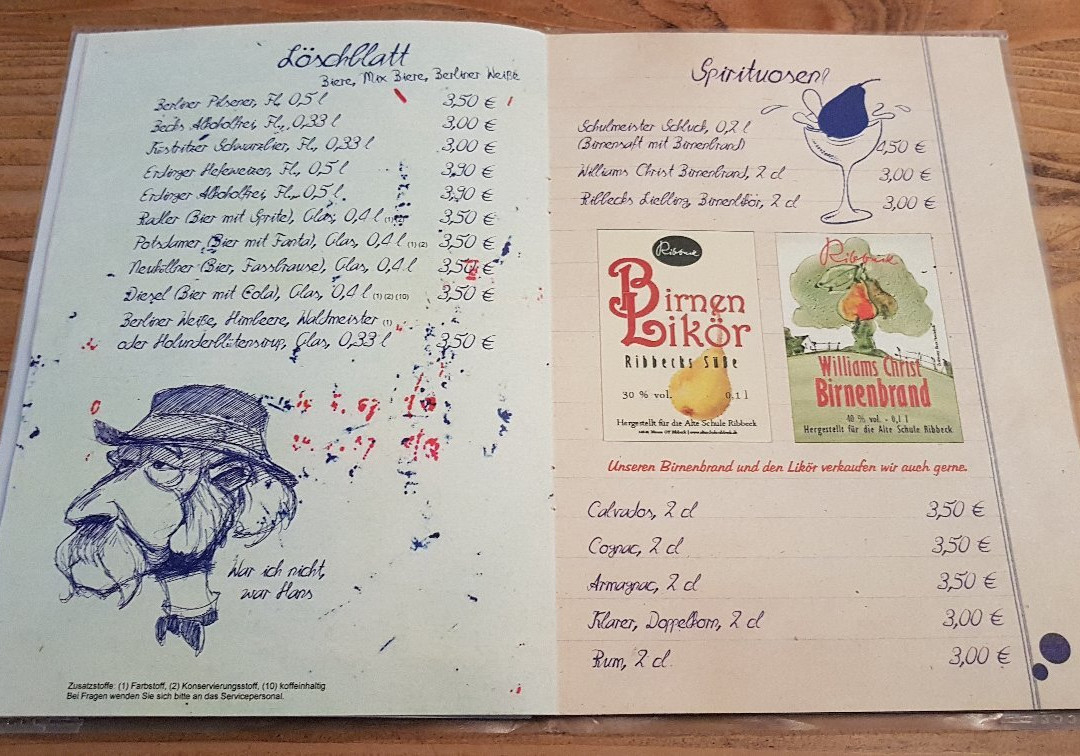 Löschblatt
Biere, Mix Biere, Berliner Weiße
Berliner Pilsener, Fl, 0,5 l 3,50 €
Becks Alkoholfrei, Fl., 0,33 l 3,00 €
Köstritzer Schwarzbier, Fl, 0,33 l 3,00 €
Erdinger Hefeweizen, Fl, 0,5 l 3,90 €
Erdinger Alkoholfrei, Fl., 0,5 l 3,90 €
Radler (Bier mit Sprite), Glas, 0,4 l (1) 3,50 €
Potsdamer (Bier mit Fanta), Glas, 0,4 l (1) (2) 3,50 €
Neuköllner (Bier, Fassbrause), Glas, 0,4 l 3,50 €
Diesel (Bier mit Cola), Glas, 0,4 l (1) (2) (10) 3,50 €
Berliner Weiße, Himbeere, Waldmeister (1)
oder Holunderblütensirup, Glas, 0,33 l 3,50 €
War ich nicht,
war Hans
Zusatzstoffe: (1) Farbstoff, (2) Konservierungsstoff, (10) koffeinhaltig
Bei Fragen wenden Sie sich bitte an das Servicepersonal.
Spirituosen!
Schulmeister Schluck, 0,2 l
(Birnensaft mit Birnenbrand) 4,50 €
Williams Christ Birnenbrand, 2 cl 3,00 €
Ribbecks Liebling, Birnenlikör, 2 cl 3,00 €
Ribbeck
Birnen
Likör
Ribbecks Süße
30 % vol. 0,1 l
Hergestellt für die Alte Schule Ribbeck
Ribbeck
Williams Christ
Birnenbrand
40 % vol. - 0,1 l
Hergestellt für die Alte Schule Ribbeck
Unseren Birnenbrand und den Likör verkaufen wir auch gerne.
Calvados, 2 cl 3,50 €
Cognac, 2 cl 3,50 €
Armagnac, 2 cl 3,50 €
Klarer, Doppelkorn, 2 cl 3,00 €
Rum, 2 cl 3,00 €